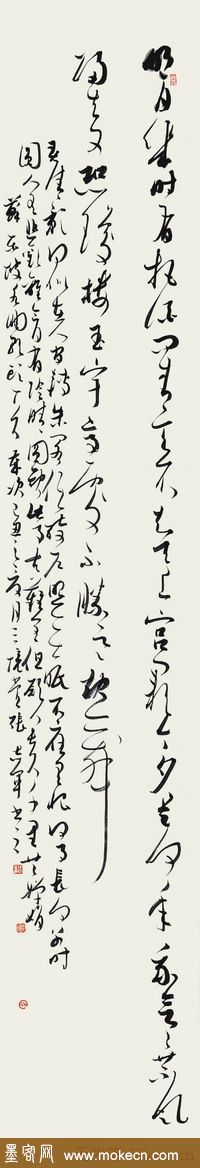 明月幾时有把酒问青天不知天上宫阙今夕是何年我欲乘风
归去又恐琼楼玉宇高处不胜寒起舞
弄清影何似在人间转朱阁低绮户照无眠不应有恨何事长向别时
圆人有悲欢离合月有阴晴圆缺此事古难全但愿人长久千里共婵娟
苏东坡水调歌头 月三境堂张志军书之
墨客网 www.mokecn.com